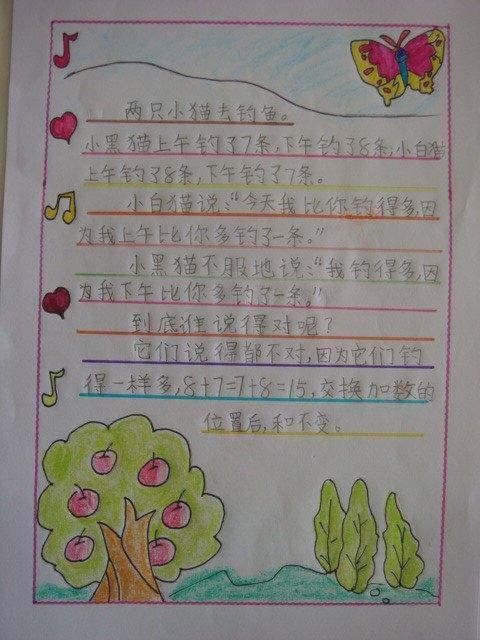 两只小猫去钓鱼。
小黑猫上午钓了7条,下午钓了8条,小白猫
上午钓了8条,下午钓了7条。
小白猫说:“今天我比你钓得多,因
为我上午比你多钓了一条。”
小黑猫不服地说:“我钓得多,因
为我下午比你多钓了一条。”
到底谁说得对呢?
它们说得都不对,因为它们钓
得一样多,8+7=7+8=15,交换加数的
位置后,和不变。